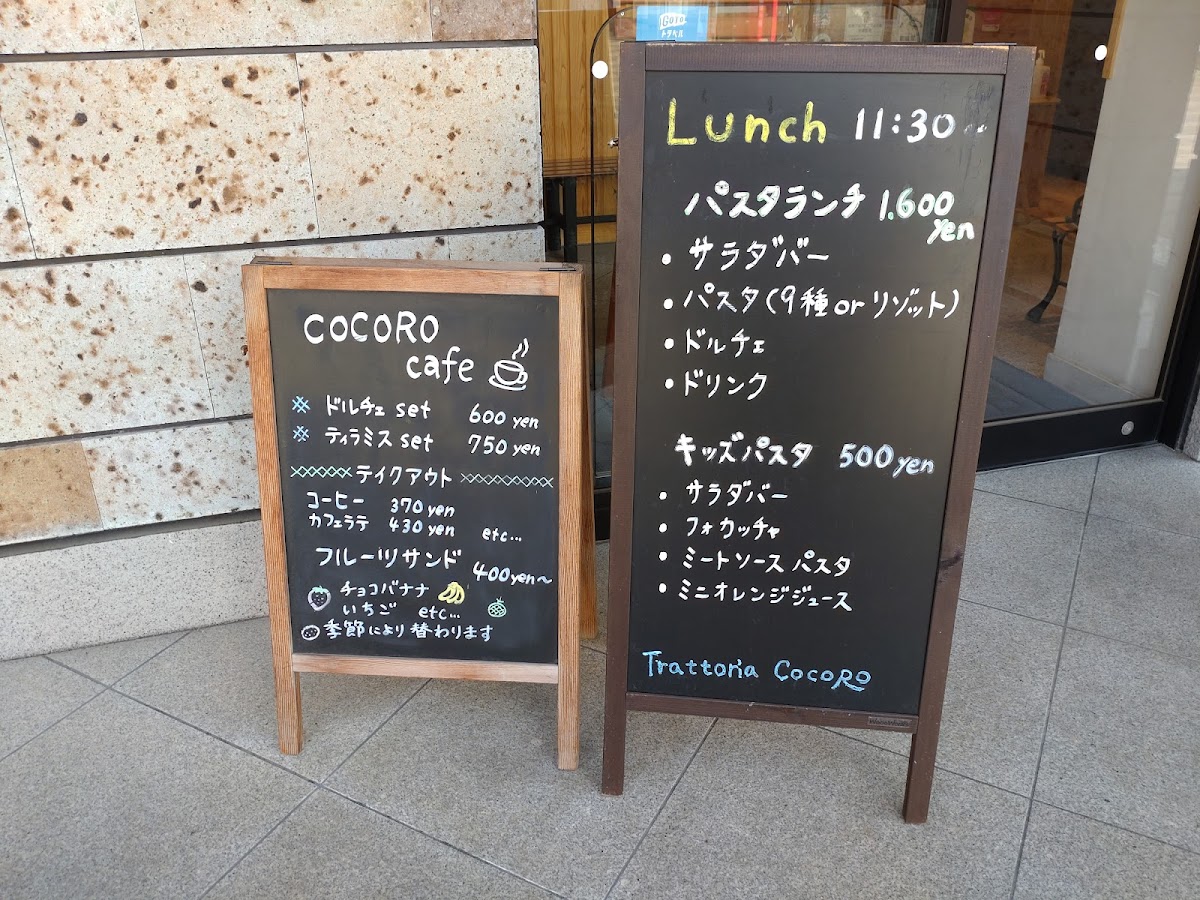 COCORO
cafe
ドルチェ set 600 yen
ティラミス set 750 yen
テイクアウト
コーヒー 370 yen
カフェラテ 430 yen etc...
フルーツサンド
400 yen~
チョコバナナ
いちご etc...
季節により替わります
GoTo
トラベル
Lunch 11:30~
パスタランチ 1.600
yen
• サラダバー
• パスタ(9種orリゾット)
• ドルチェ
• ドリンク
キッズパスタ 500 yen
• サラダバー
• フォカッチャ
• ミートソースパスタ
• ミニオレンジジュース
Trattoria CocoRo